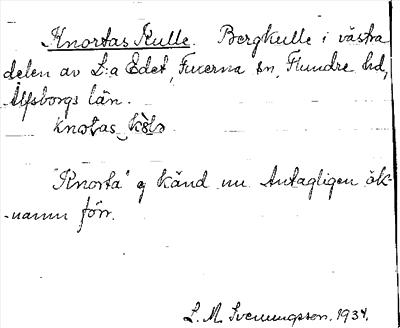 Knortas Kulle. Bergkulle i västra
delen av L:a Edet, Fuxerna sn, Flundre hd,
Älfsborgs län.
knotas
"Knorta" ej känd nu. Antagligen ök-
-namn förr.
L. M. Svenungsson. 1934.